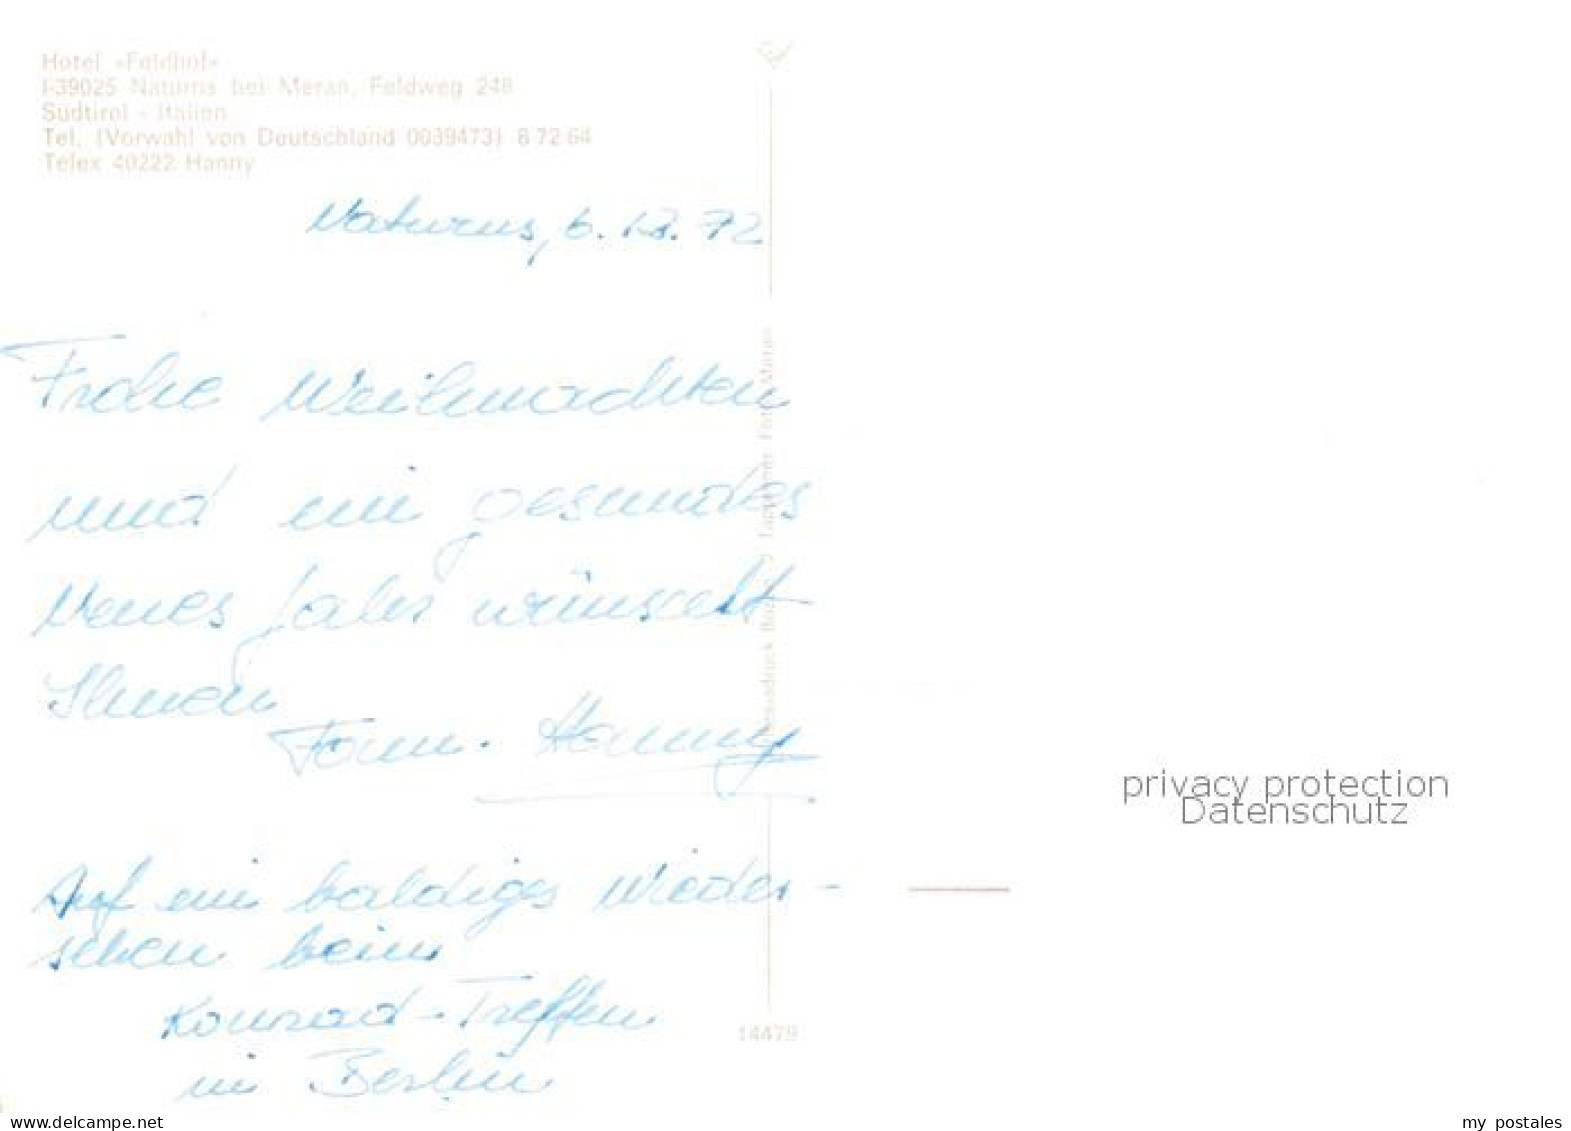 Hotel «Feldhof»
I-39025 Naturns bei Meran, Feldweg 248
Südtirol - Italien
Tel. (Vorwahl von Deutschland 0039473) 8 72 64
Telex 40222 Hanny
Naturns, 6. 12. 72
Frohe Weihnachten
und ein gesundes
Neues Jahr wünscht
Ihnen
Fam. Hanny
Auf ein baldiges Wieder-
sehen beim
Konrad-Treffen
in Berlin
Tappeiner Foto Meran
14479
privacy protection
Datenschutz
www.delcampe.net
my_postales